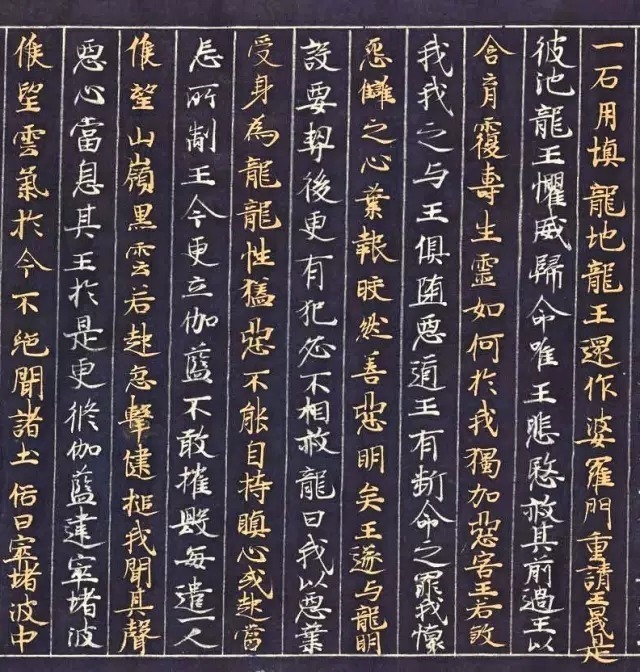 一石用填龍池龍王還作婆羅門重請王曰我是
彼池龍王懼威歸命唯王悲愍赦其前過王以
含育覆壽生靈如何於我獨加惡害王若敀
我我之与王俱墮惡道王有斷命之罪我懷
惡讎之心業報皎然善惡明矣王遂与龍明
設要契後更有犯必不相赦龍曰我以惡業
受身為龍龍性猛惡不能自持瞋心或起當
忘所制王今更立伽藍不敢摧毀每遣一人
候望山嶺黒雲若起急擊揵搥我聞其聲
惡心當息其王於是更脩伽藍建窣堵波
候望雲氣於今不絶聞諸土俗曰窣堵波中